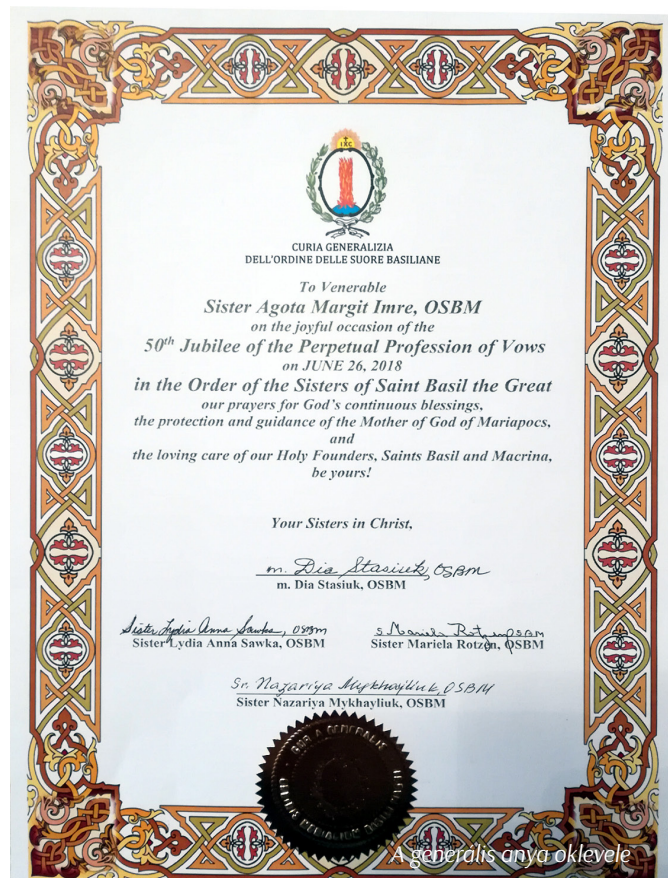 IXC
CURIA GENERALIZIA
DELL'ORDINE DELLE SUORE BASILIANE
To Venerable
Sister Agota Margit Imre, OSBM
on the joyful occasion of the
50th Jubilee of the Perpetual Profession of Vows
on JUNE 26, 2018
in the Order of the Sisters of Saint Basil the Great
our prayers for God's continuous blessings,
the protection and guidance of the Mother of God of Mariapocs,
and
the loving care of our Holy Founders, Saints Basil and Macrina,
be yours!
Your Sisters in Christ,
m. Dia Stasiuk, OSBM
m. Dia Stasiuk, OSBM
Sister Lydia Anna Sawka, OSBM
s. Mariela Rotzen OSBM
Sister Lydia Anna Sawka, OSBM
Sister Mariela Rotzen, OSBM
Sr. Nazariya Mykhayliuk, OSBM
Sister Nazariya Mykhayliuk, OSBM
GENERALIS
A generális anya oklevele